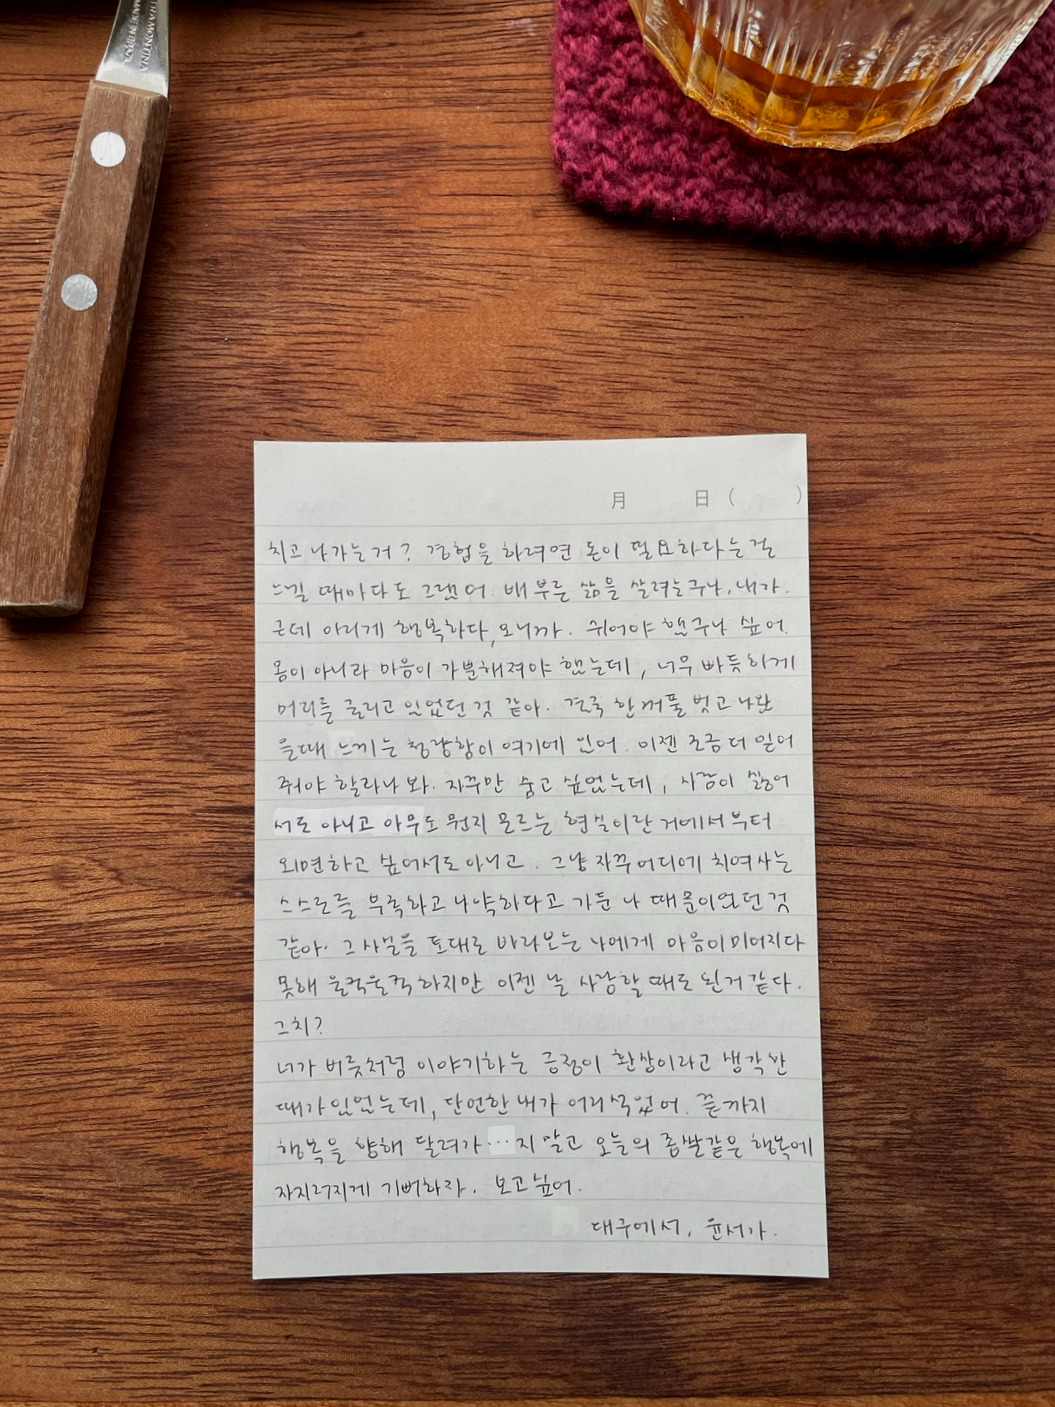 TRAMONTINA
MADE IN BRAZIL
月 日 ( )
치고 나가는거? 경험을 하려면 돈이 필요하다는 걸
느낄 때마다도 그랬어. 배부른 삶을 살려는구나, 내가.
근데 아리게 행복하다, 오니까. 쉬어야 했구나 싶어.
몸이 아니라 마음이 가뿐해져야 했는데, 너무 빠듯하게
머리를 굴리고 있었던 것 같아. 결국 한꺼풀 벗고 나왔
을때 느끼는 청량함이 여기에 있어. 이젠 조금 더 믿어
줘야 할라나 봐. 자꾸만 숨고 싶었는데, 사람이 싫어
서도 아니고 아무도 뭔지 모르는 현실이란 거에서부터
외면하고 싶어서도 아니고. 그냥 자꾸 어디에 치여사는
스스로를 부족하고 나약하다고 가둔 나 때문이었던 것
같아. 그 사실을 토대로 바라보는 나에게 마음이 미어지다
못해 울컥울컥 하지만 이젠 날 사랑할 때도 된거 같다.
그치?
너가 버릇처럼 이야기하는 긍정이 환상이라고 생각한
때가 있었는데, 단언한 내가 어리석었어. 끝까지
행복을 향해 달려가···지 말고 오늘의 좁쌀같은 행복에
자지러지게 기뻐하자. 보고싶어.
대구에서, 윤서가.